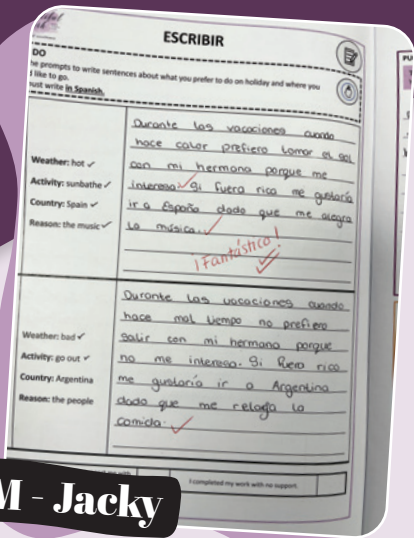 ESCRIBIR
DO
he prompts to write sentences about what you prefer to do on holiday and where you
d like to go.
ust write in Spanish.
Weather: hot ✓
Activity: sunbathe ✓
Country: Spain ✓
Reason: the music ✓
Durante las vacaciones cuando
hace calor prefiero tomar el sol
con mi hermana porque me
interesa. Si fuera rica me gustaría
ir a España dado que me alegra
la música.
¡Fantástico!
Weather: bad ✓
Activity: go out ✓
Country: Argentina
Reason: the people
Durante las vacaciones cuando
hace mal tiempo no prefiero
salir con mi hermana porque
no me interesa. Si fuera rica
me gustaría ir a Argentina
dado que me relaja la
comida.
I completed my work with no support.
M - Jacky